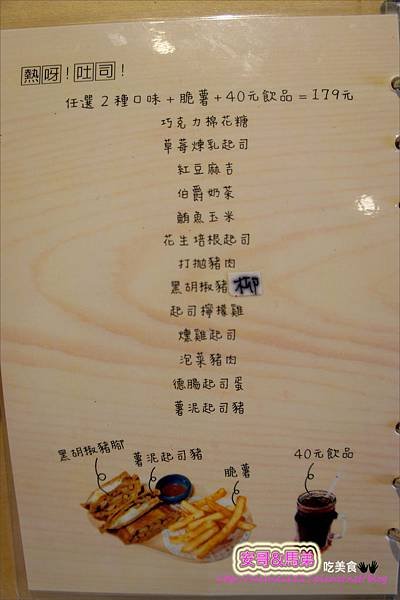 熱呀!吐司!
任選2種口味+脆薯+40元飲品=179元
巧克力棉花糖
草莓煉乳起司
紅豆麻吉
伯爵奶茶
鮪魚玉米
花生培根起司
打拋豬肉
黑胡椒豬柳
起司檸檬雞
燻雞起司
泡菜豬肉
德腸起司蛋
薯泥起司豬
黑胡椒豬腳
薯泥起司豬
脆薯
40元飲品
安哥&馬弟
吃美食